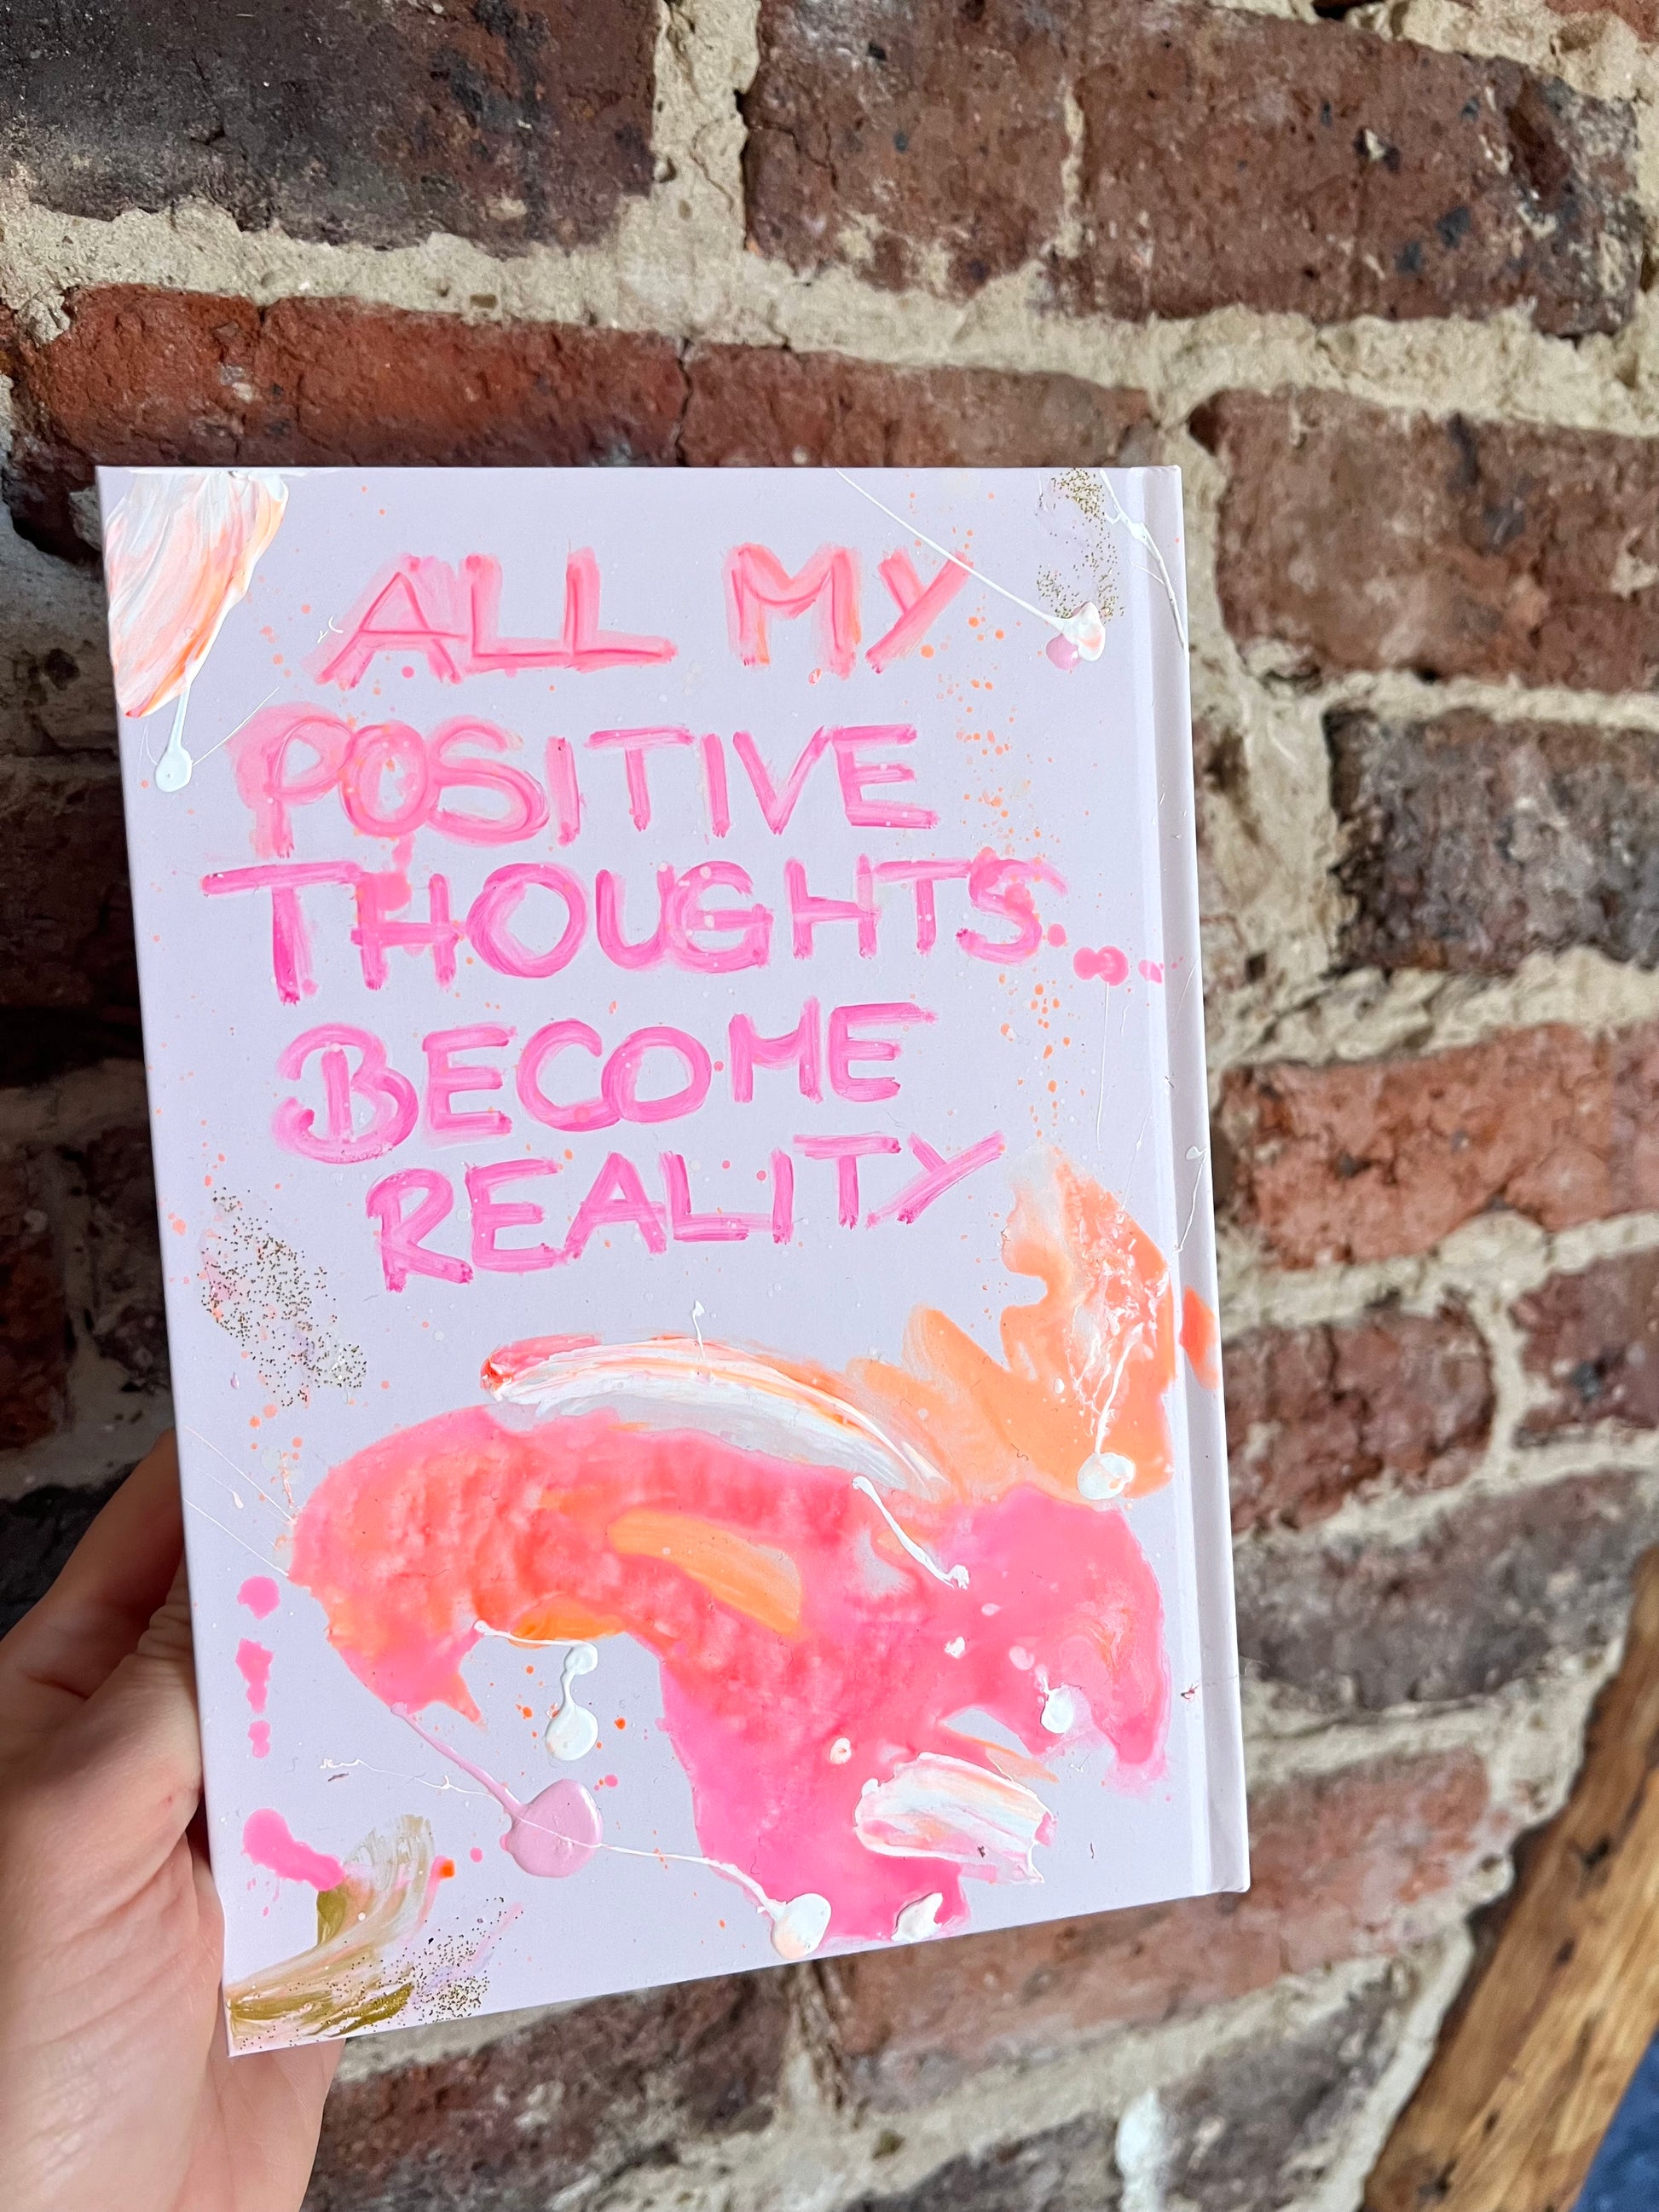 ALL MY
POSITIVE
THOUGHTS...
BECOME
REALITY